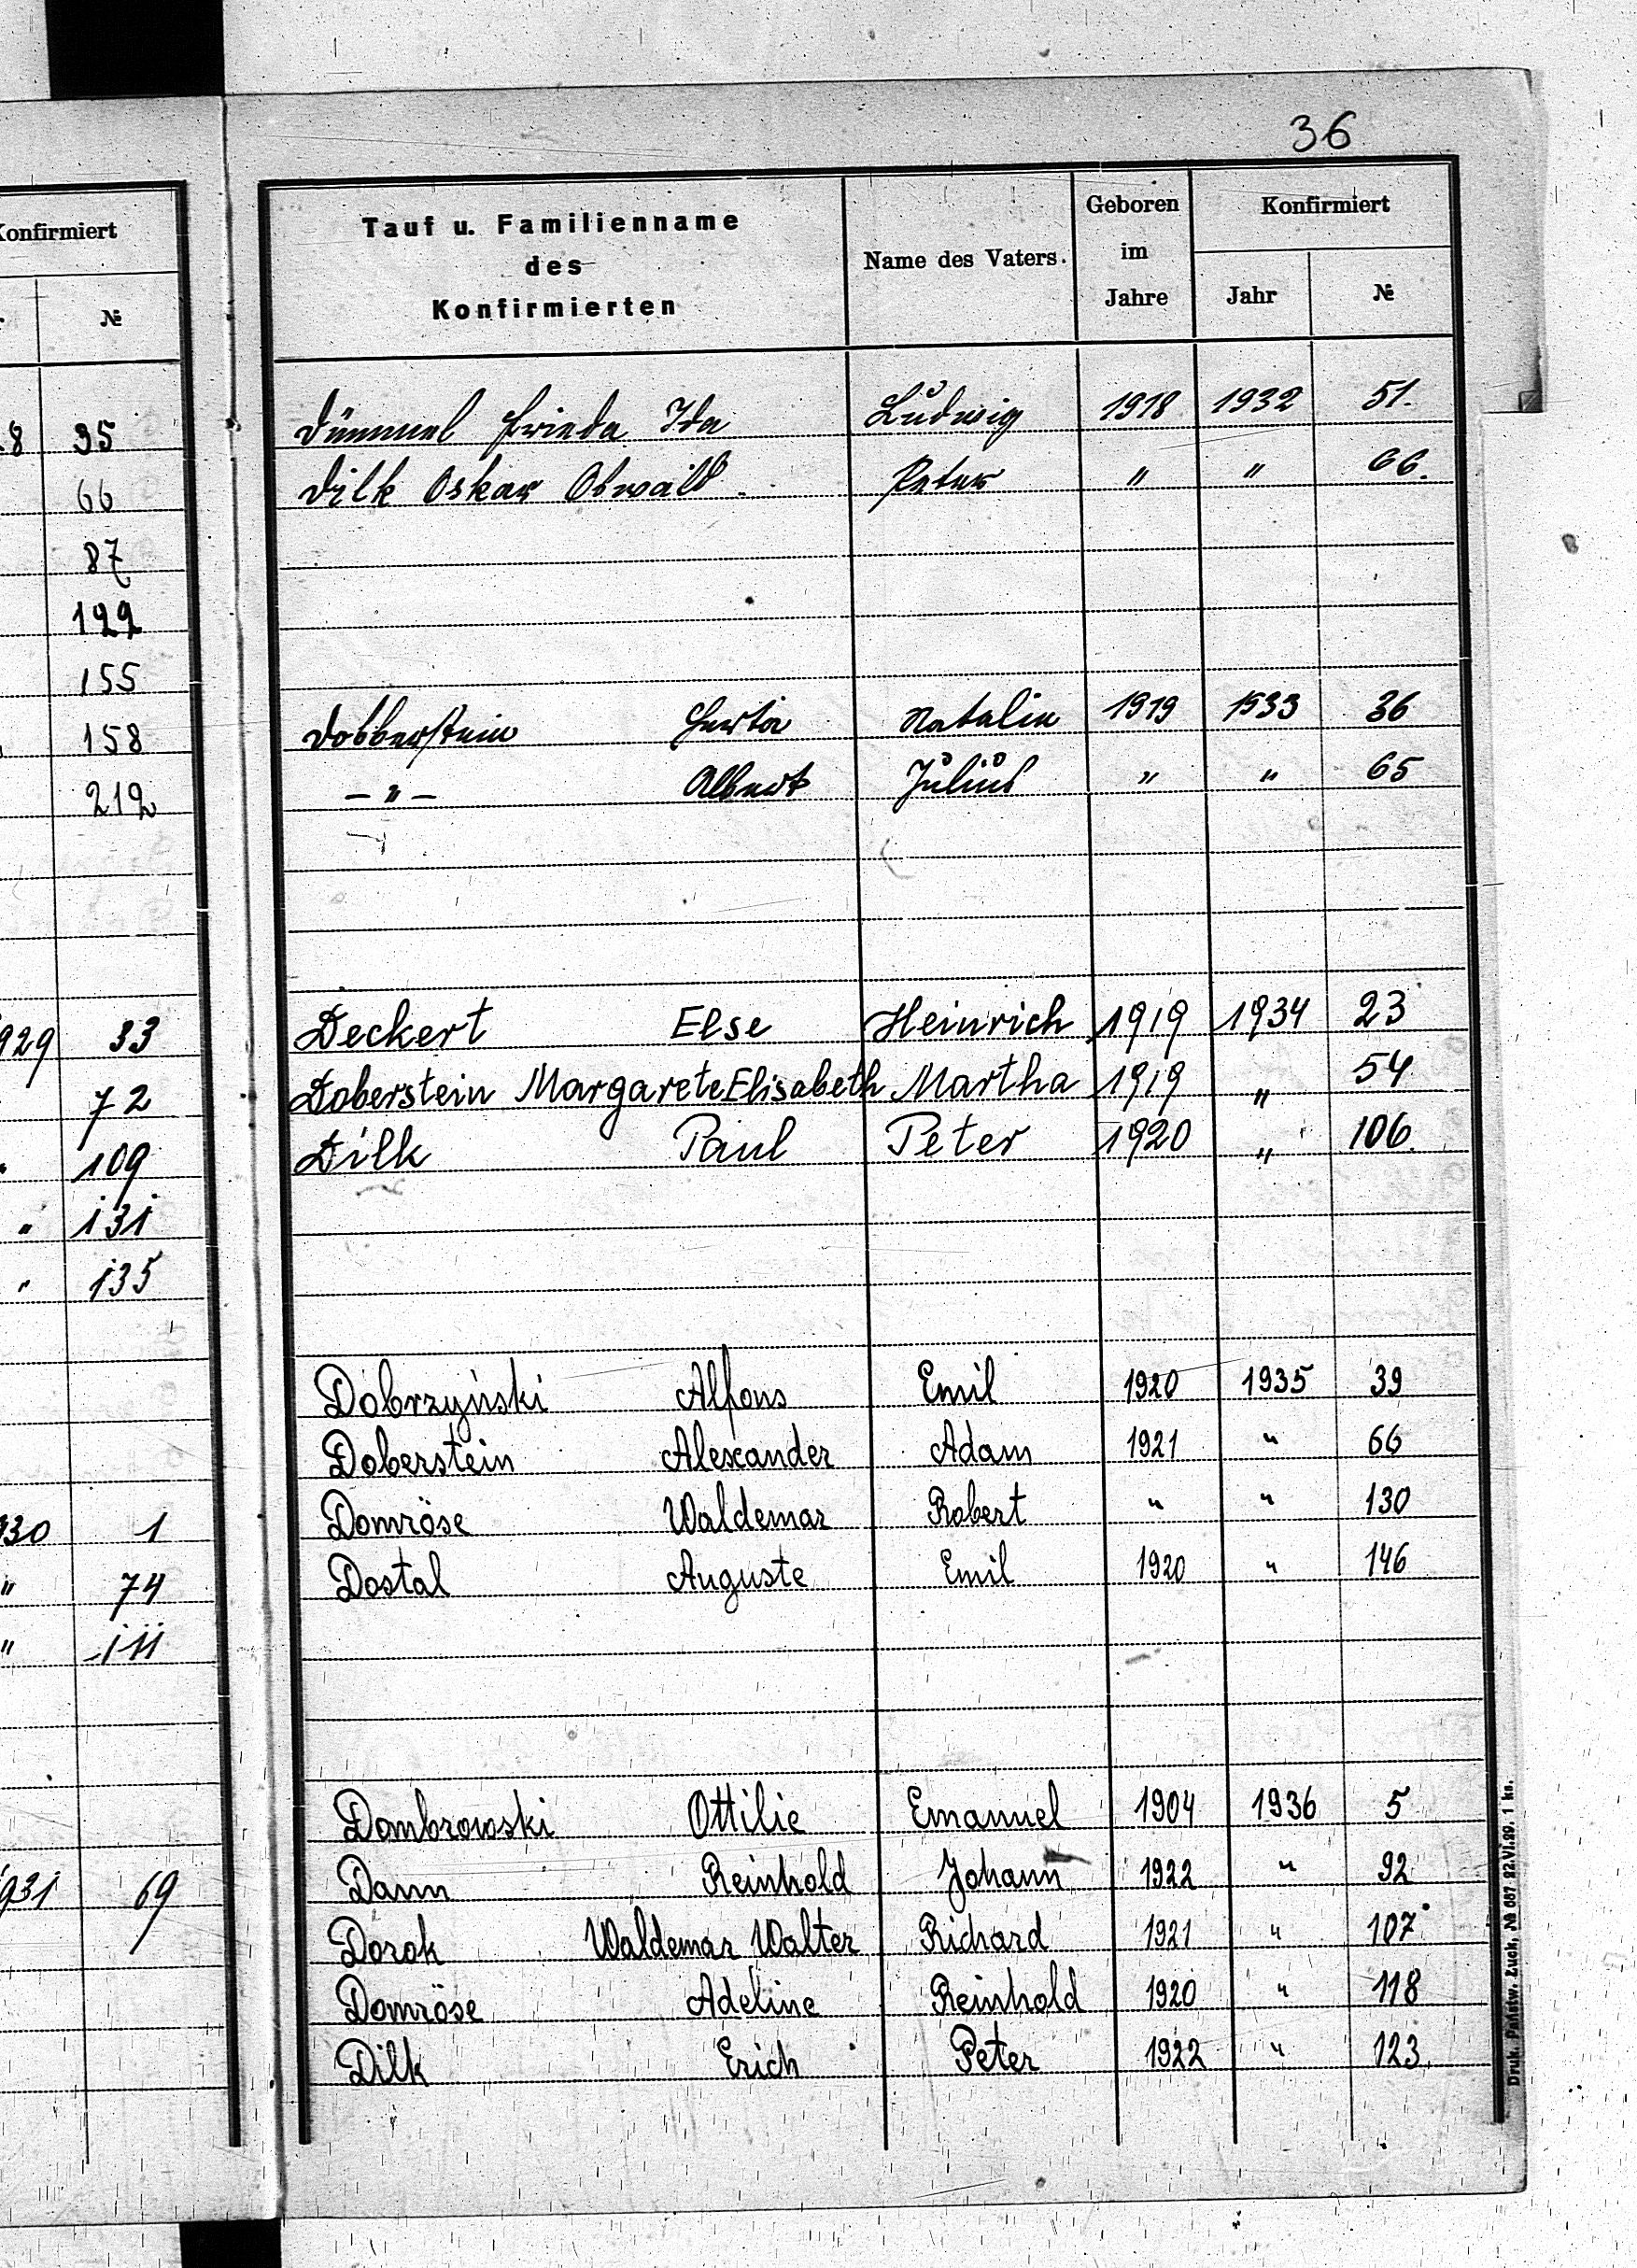 36
Konfirmiert
№
8 35
66
87
122
155
158
212
1929 33
72
109
" 131
" 135
1930 1
" 74
" 111
1931 69
Tauf u. Familienname des Konfirmierten
Name des Vaters.
Geboren im Jahre
Konfirmiert
Jahr №
Dümmel Frieda Ida Ludwig 1918 1932 51.
Dilk Oskar Oswald Peter " " 66.
Dobberstein Herta Natalie 1919 1933 36
– " – Albert Julius " " 65
Deckert Else Heinrich 1919 1934 23
Doberstein Margarete Elisabeth Martha 1919 " 54
Dilk Paul Peter 1920 " 106.
Dobrzyński Alfons Emil 1920 1935 39
Doberstein Alexander Adam 1921 " 66
Domröse Waldemar Robert " " 130
Dostal Auguste Emil 1920 " 146
Dombrowski Ottilie Emanuel 1904 1936 5
Dann Reinhold Johann 1922 " 92
Dorok Waldemar Walter Richard 1921 " 107
Domröse Adeline Reinhold 1920 " 118
Dilk Erich Peter 1922 " 123
Druk. Państw. Łuck, № 667 22.VI.29. 1 kn.